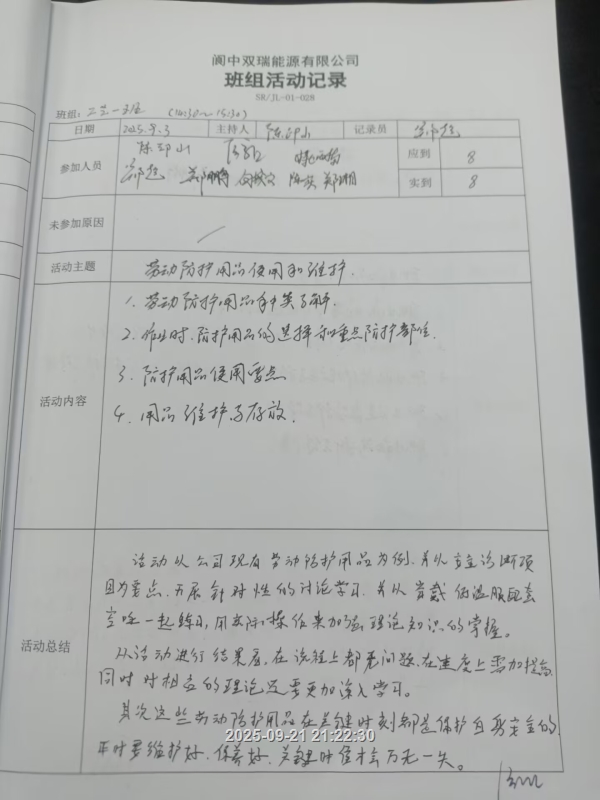 阆中双瑞能源有限公司
班组活动记录
SR/JL-01-028
班组: 工艺一班 (14:30~15:30)
日期 2025.9.3 主持人 记录员
参加人员 应到 8
实到 8
未参加原因
活动主题 劳动防护用品使用和维护.
1. 劳动防护用品种类了解.
2. 作业时、防护用品的选择和重点防护部位.
3. 防护用品使用要点
活动内容
4. 用品维护与存放.
该活动以公司现有劳动防护用品为例,并以
目为要点、开展针对性的讨论学习.并以穿戴低温服
一起练习,用实际操作来加强理论知识的掌握。
活动总结
从活动进行结果看,在流程上都无问题,在速度上需加提高,
同时对相应的理论还要更加深入学习。
其次这些劳动防护用品在关键时刻都是保护自身安全的,
平时要维护好、保养好,关键时候才会万无一失。
2025-09-21 21:22:30